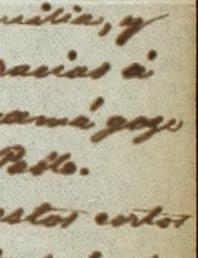 milia, y
racias á
mamá goze
Pablo.
estos cortos